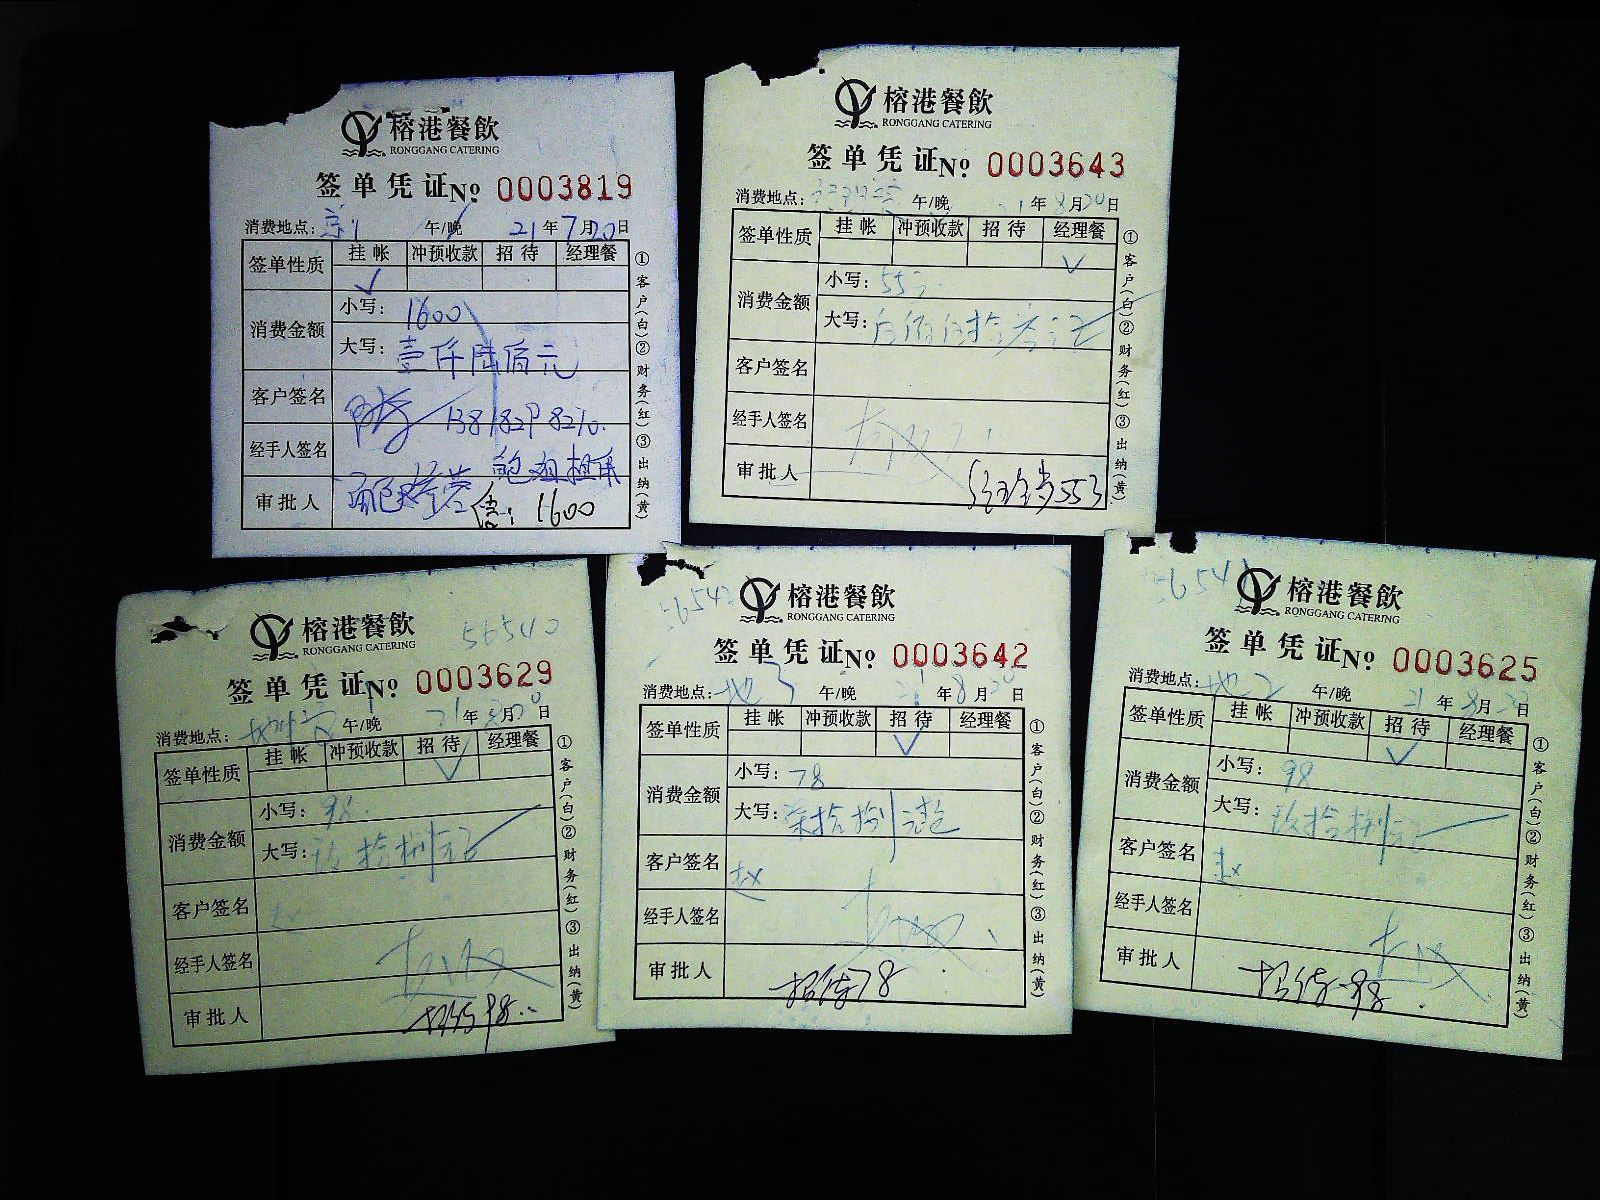 榕港餐飲
RONGGANG CATERING
签单凭证 No 0003819
消费地点: 午/晚 21年7月20日
签单性质 挂帐 冲预收款 招待 经理餐
✓
消费金额 小写: 1600
大写: 壹仟陆佰元
客户签名
经手人签名
审批人 1600
①客户(白)②财务(红)③出纳(黄)
榕港餐飲
RONGGANG CATERING
签单凭证 No 0003643
消费地点: 午/晚 21年8月20日
签单性质 挂帐 冲预收款 招待 经理餐
✓
消费金额 小写: 553
大写: 伍佰伍拾叁元
客户签名
经手人签名
审批人 553
①客户(白)②财务(红)③出纳(黄)
56540
榕港餐飲
RONGGANG CATERING
签单凭证 No 0003629
消费地点: 午/晚 21年8月20日
签单性质 挂帐 冲预收款 招待 经理餐
✓
消费金额 小写: 98
大写: 玖拾捌元
客户签名
经手人签名
审批人 招待98
①客户(白)②财务(红)③出纳(黄)
榕港餐飲
RONGGANG CATERING
签单凭证 No 0003642
消费地点: 地3 午/晚 21年8月20日
签单性质 挂帐 冲预收款 招待 经理餐
✓
消费金额 小写: 78
大写: 柒拾捌元整
客户签名 赵
经手人签名
审批人 招待78
①客户(白)②财务(红)③出纳(黄)
榕港餐飲
RONGGANG CATERING
签单凭证 No 0003625
消费地点: 地2 午/晚 21年8月20日
签单性质 挂帐 冲预收款 招待 经理餐
✓
消费金额 小写: 98
大写: 玖拾捌元
客户签名 赵
经手人签名
审批人 招待98
①客户(白)②财务(红)③出纳(黄)